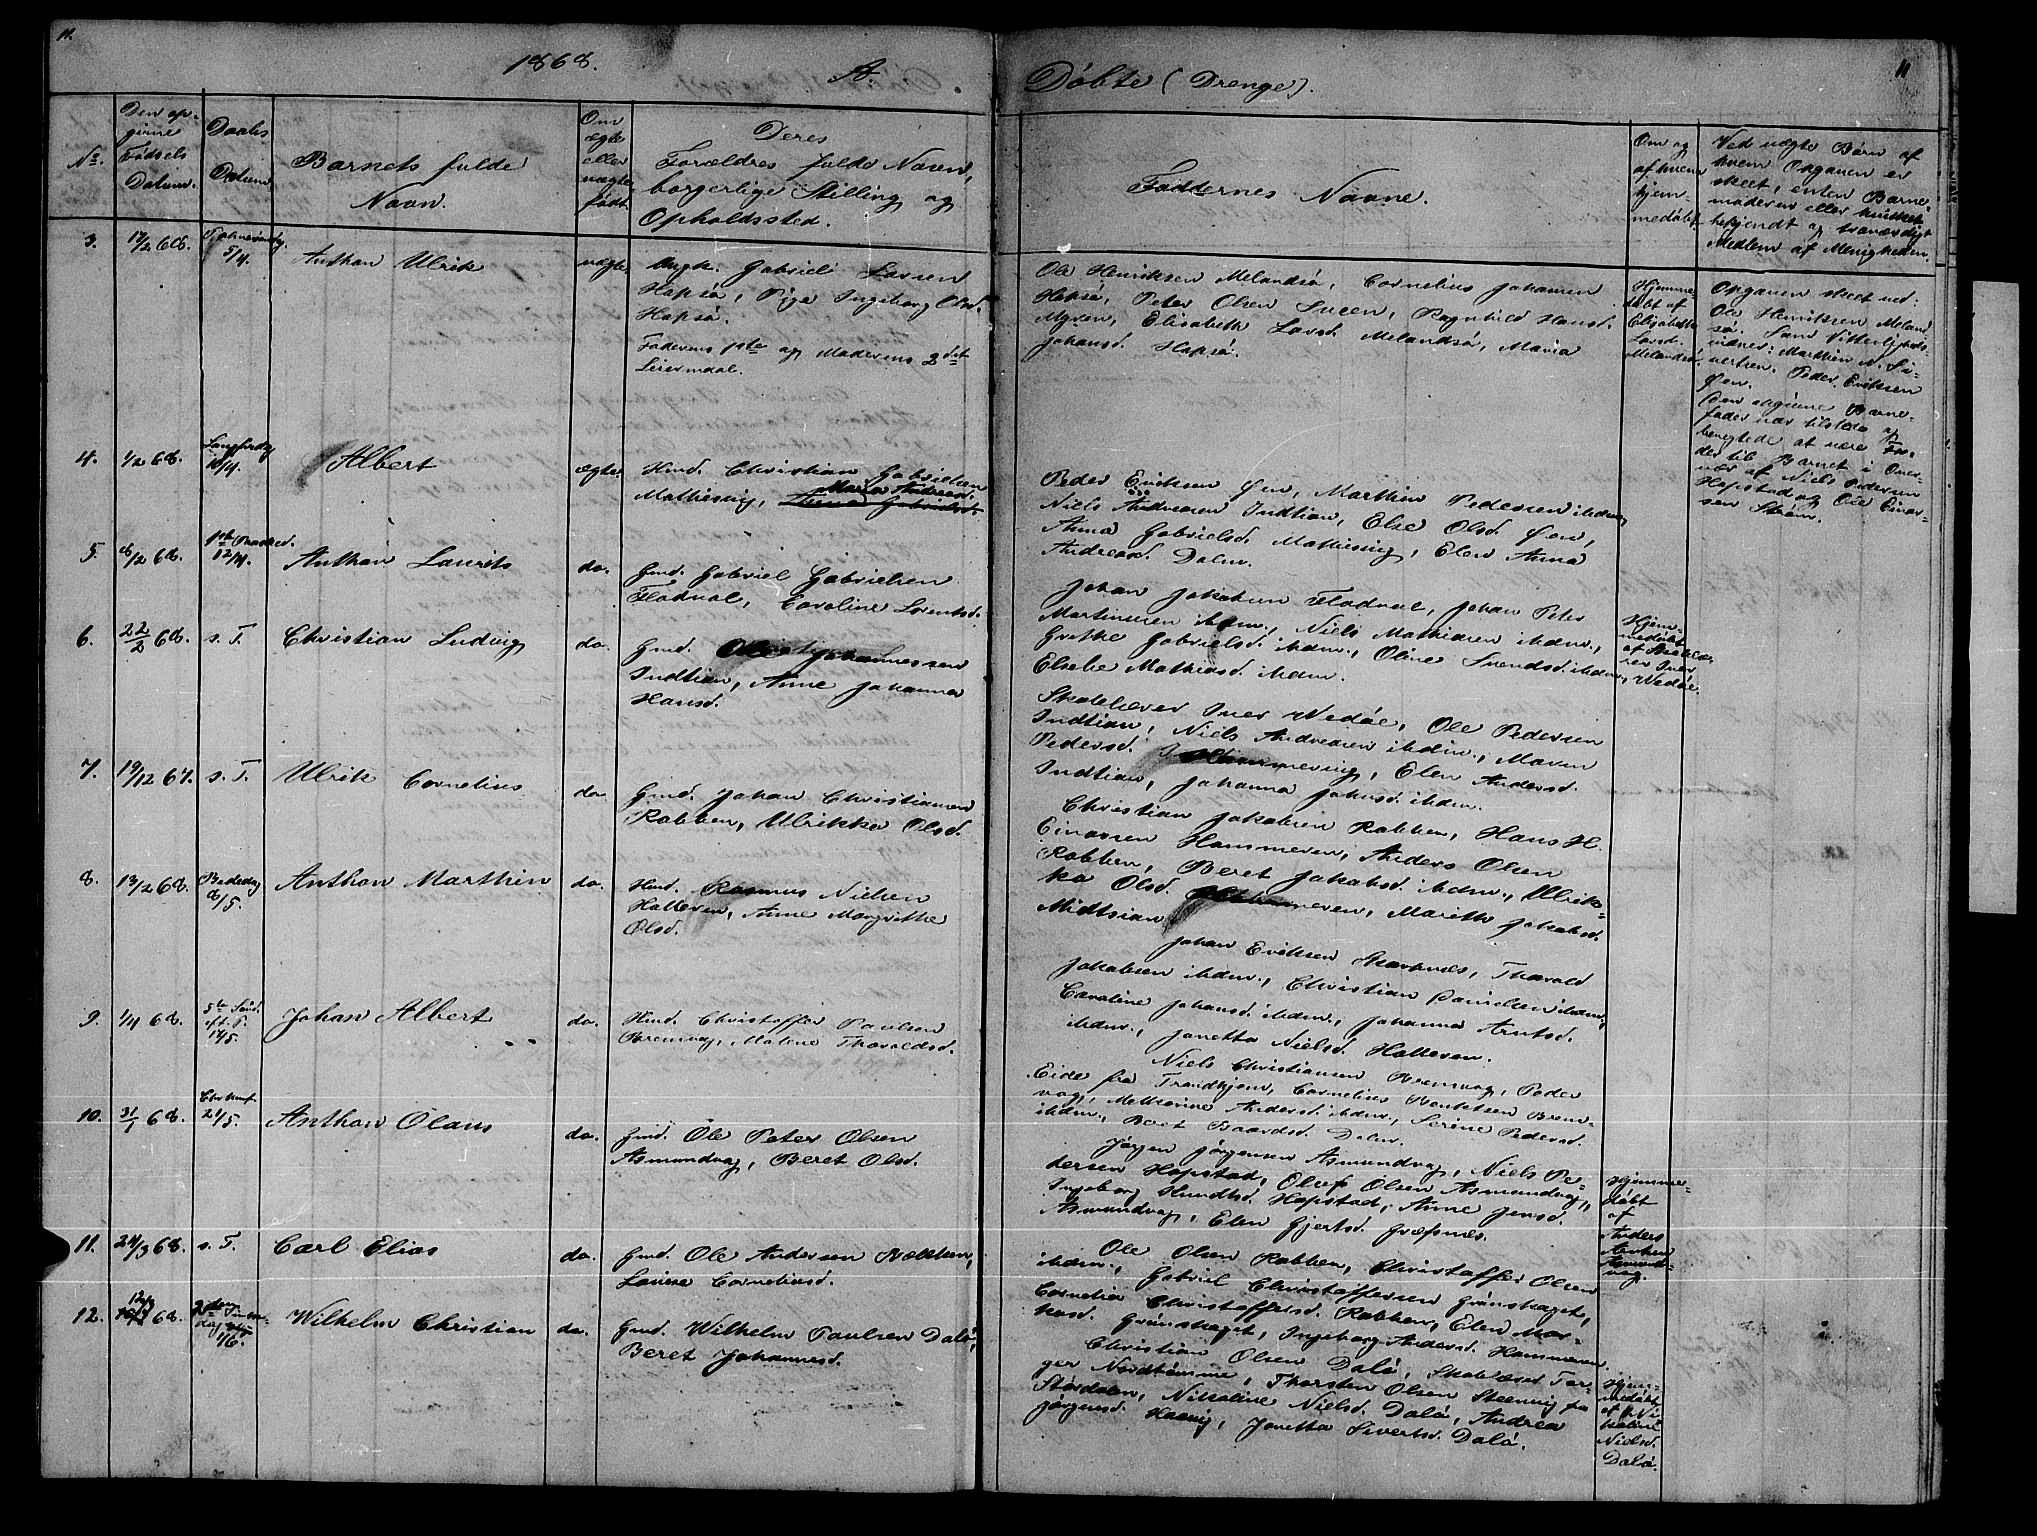 11.
1868.
A.
Døbte (Drenge).
11
No.
Den op-
givne
Fødsels
Datum.
Daabs
Datum
Barnets fulde
Navn.
Om
ægte
eller
uægte
født.
Deres
Forældres fulde Navn,
borgerlige Stilling og
Opholdssted.
Faddernes Navne.
Om og
af hvem
hjem-
medøbt.
Ved uægte Børn af
hvem Opgaven er
skeet, enten Barne-
moderen eller hvilket
bekjendt og troværdigt
Medlem af Menigheden.
3.
17/2 68.
5/4.
Anthon Ulrik
uægte
Ungk. Gabriel Larsen
Hapsø, Pige Ingeborg Olsd.
Hapsø.
Faderens 1ste og Moderens 2det
Leiermaal.
Ole Henriksen Melandsø, Cornelius Johansen
Hapsø, Peter Olsen Sueen, Ragnhild Hansd.
Myren, Elisabeth Larsd. Melandsø, Maria
Johansd. Hapsø.
Hjemme-
døbt af
Elisabeth
Larsd.
Melandsø.
Opgaven skeet ved
Ole Henriksen Meland-
sø. Samt Vitterligheds-
vidner: Marthin N. Si-
vertsen. Peder Eriksen
Øen.
Den opgivne Barne-
fader var tilstede og
benegtede at være Fa-
der til Barnet i Over-
vær af Niels Pedersen
Hopstad og Ole Einar-
sen Strøm.
4.
1/2 68.
Langfredag
10/4.
Albert
ægte
Hmd. Christian Gabrielsen
Maria Andreasd.
Mathiesvig, Anna Gabrielsd.
Peder Eriksen Øen, Marthin Pedersen ibdm.,
Niels Andreasen Indtian, Else Olsd. Øen,
Anna Gabrielsd. Mathiesvig, Elen Anna
Andreasd. Dalen.
5.
8/2 68.
1ste Paasked.
12/4.
Anthon Laurits
do.
Gmd. Gabriel Gabrielsen
Flatval, Caroline Lorentsd.
Johan Jakobsen Flatval, Johan Peter
Martinusen ibdm., Niels Mathiasen ibdm.,
Grethe Gabrielsd. ibdm., Oline Svendsd. ibdm.,
Elsebe Mathiasd. ibdm.
6.
22/2 68.
s. T.
Christian Ludvig
do.
Gmd. Johannessen
Indtian, Anne Johanna
Hansd.
Skolelærer Iver Wedøe, Ole Pedersen
Indtian, Niels Andreasen ibdm., Maren
Pedersd. Hammervig, Elen Andersd.
Indtian, Johanna Johnsd. ibdm.
Hjem-
medøbt
af Skolelæ-
rer Iver
Wedøe.
7.
19/12 67.
s. T.
Ulrik Cornelius
do.
Gmd. Johan Christiansen
Rabben, Ulrikka Olsd.
Christian Jakobsen Rabben, Hans H.
Einarsen Hammeren, Anders Olsen
Rabben, Beret Jakobsd. ibdm., Ulrik-
ka Olsd. Hammeren, Marith Jakobsd.
Midtsian
8.
13/2 68.
Bededag
8/5.
Anthon Marthin
do.
Hmd. Rasmus Nielsen
Hatteren, Anne Margrethe
Olsd.
Johan Eriksen Starknes, Thorvald
Jakobsen ibdm., Christian Danielsen ibdm.,
Caroline Johansd. ibdm., Johanna Arntsd.
ibdm., Janetta Nielsd. Hatteren.
9.
1/4 68.
5te Sønd.
eft. P.
17/5.
Johan Albert
do.
Hmd. Christoffer Paulsen
Bremvag, Malene Thorvaldsd.
Niels Christiansen Bremvag, Peder
Eide fra Trondhjem, Cornelius Bentsen Brem-
vag, Methærine Andersd. ibdm., Serine Pedersd.
ibdm., Beret Baardsd. Dalen.
10.
31/1 68.
Chr. Himf.
21/5.
Anthon Olaus
do.
Gmd. Ole Peter Olsen
Asmundvag, Beret Olsd.
Jørgen Jørgensen Asmundvag, Niels Pe-
dersen Hopstad, Oluf Olsen Asmundvag,
Ingeborg Knudtsd. Hopstad, Anne Jensd.
Asmundvag, Elen Gjertsd. Græfsnes.
Hjemme-
døbt
af
Anders
Asmund-
vag.
11.
24/3 68.
s. T.
Carl Elias
do.
Gmd. Ole Andersen
Lovise Corneliusd.
Ole Olsen Rabben, Christoffer Olsen
ibdm., Gabriel Christoffersen Grønskaget,
Cornelia Christoffersd. Rabben, Elen Mar-
kusd. Grønskaget, Ingeborg Andersd. Hammeren.
12.
12/3 68.
1/6.
Wilhelm Christian
do.
Gmd. Wilhelm Paulsen Dalø,
Beret Johannesd.
Christian Olsen Dalø, Skolelærer Tor-
ger Nordtømme, Thorsten Olsen Steenvig fra
Størdalen, Nikoline Nielsd. Dalø, Andrea
Jørgensd. Haavig, Janetta Sivertsd. Dalø.
Hjem-
medøbt
af Ni-
koline
Nielsd.
Dalø.